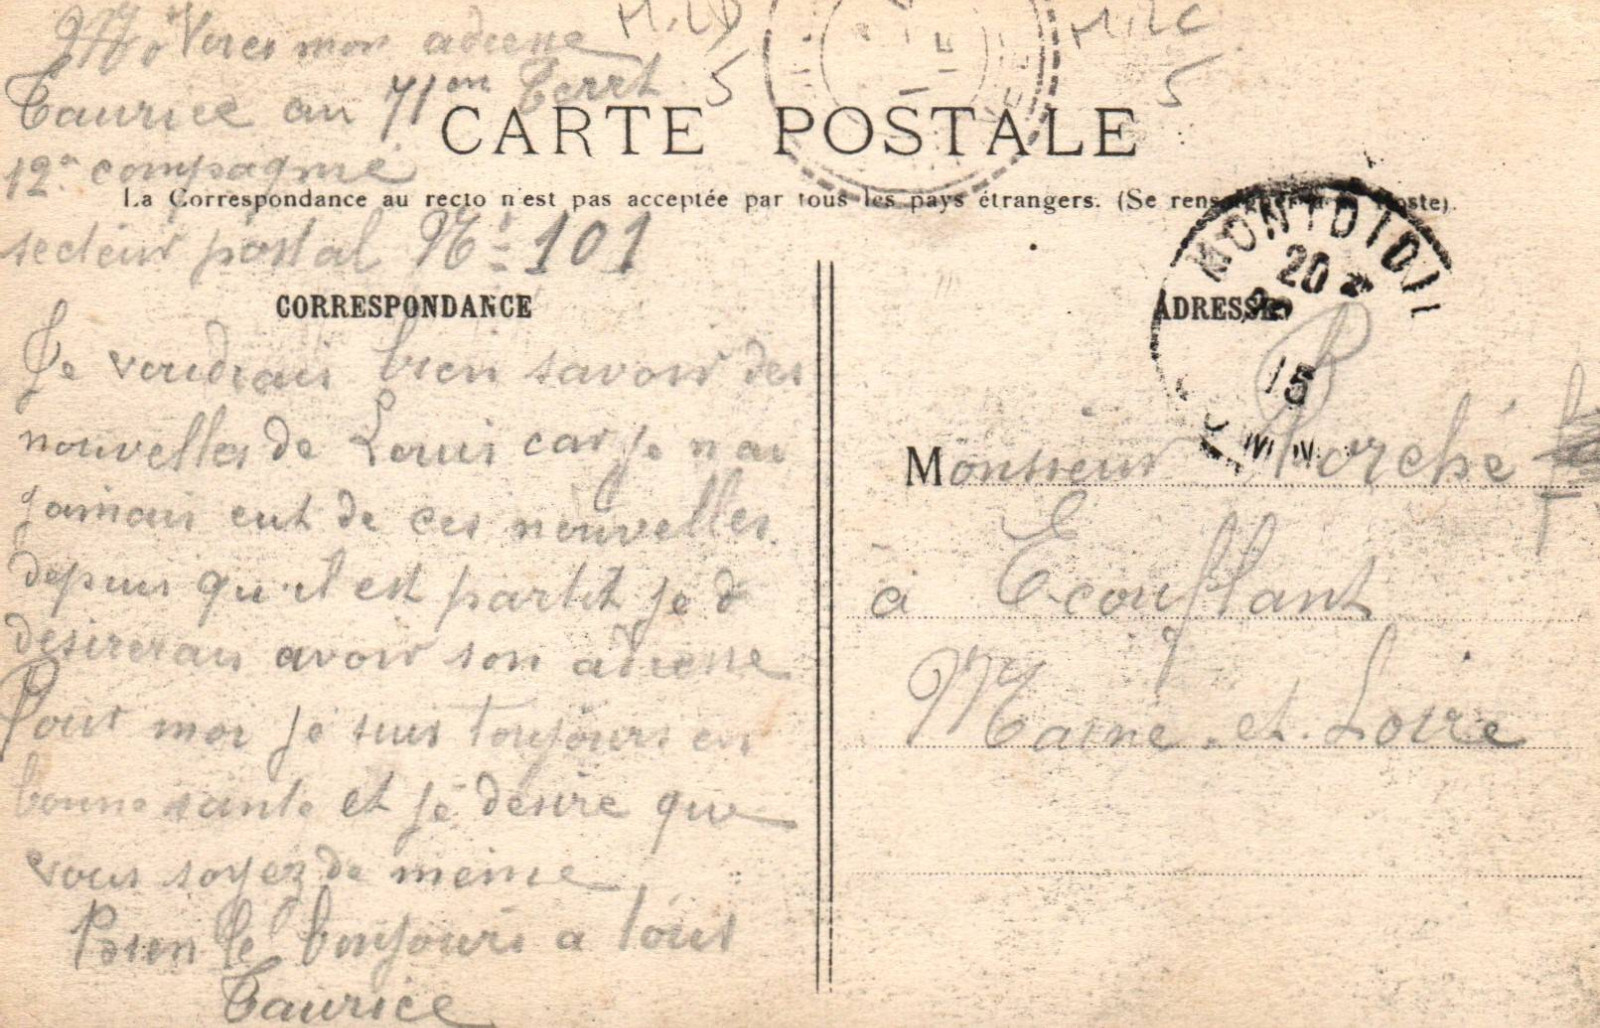 Voici mon adresse
Taurice au 71em Terrt
12e compagnie
secteur postal No 101
MILC
5
CARTE POSTALE
La Correspondance au recto n'est pas acceptée par tous les pays étrangers. (Se renseigner à la Poste).
CORRESPONDANCE
Je voudrais bien savoir des
nouvelles de Louis car je n ai
jamais eut de ces nouvelles
depuis qu'il est partit je d
desirerais avoir son adresse
Pour moi je suis toujours en
bonne sante et je desire que
vous soyez de meme
Bien le bonjours a tout
Taurice
MONTDIDI
20
15
ADRESSE
Monsieur Porché
à Ecouflant
Maine et Loire